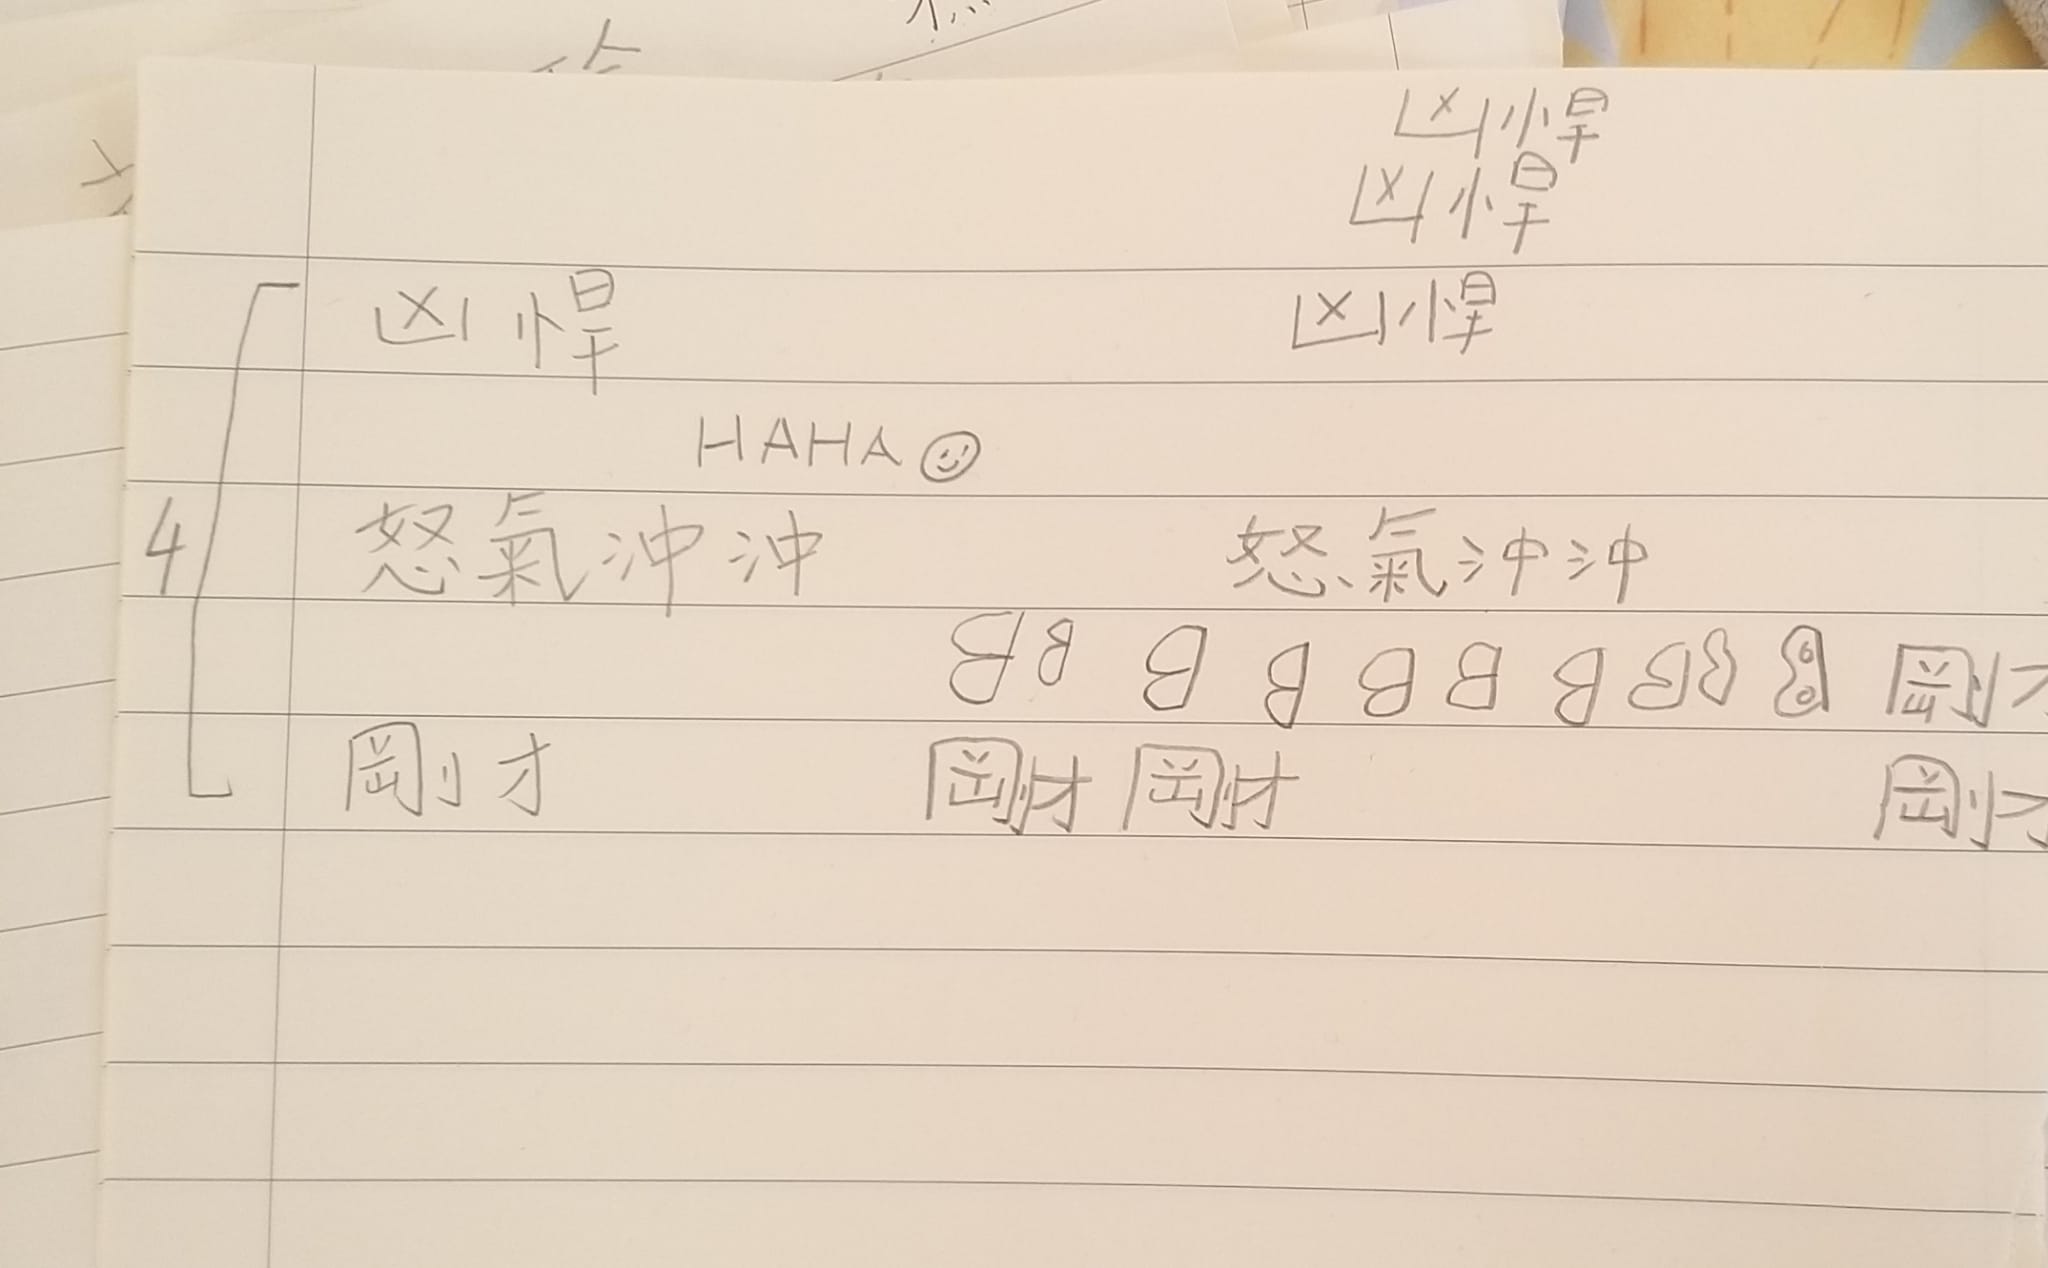 凶悍
凶悍
凶悍 凶悍
HAHA
4 怒氣沖沖 怒氣沖沖
B B B B B B B B B B 剛才
剛才 剛才 剛才 剛才